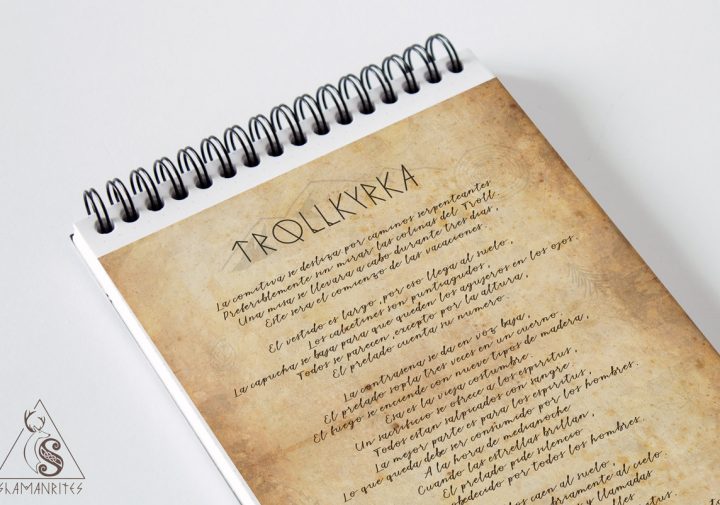 TROLLKYRKA
La comitiva se desliza por caminos serpenteantes
Preferiblemente sin mirar las colinas del Troll.
Una misa se llevara a cabo durante tres dias,
Este sera el comienzo de las vacaciones.
El vestido es largo, por eso llega al suelo,
Los calcetines son puntiagudos,
La capucha se baja para que queden los agujeros en los ojos.
Todos se parecen, excepto por la altura,
El prelado cuenta su numero.
La contrasena se da en voz baja,
El prelado sopla tres veces en un cuerno.
El fuego se enciende con nueve tipos de madera,
Esa es la vieja costumbre.
Un sacrificio se ofrece a los espiritus,
Todos estan salpicados con sangre.
La mejor parte es para los espiritus,
Lo que queda debe ser consumido por los hombres.
A la hora de medianoche
Cuando las estrellas brillan,
El prelado pide silencio
obedecido por todos los hombres.
caen al suelo,
al cielo.
y llamadas
SHAMANRITES